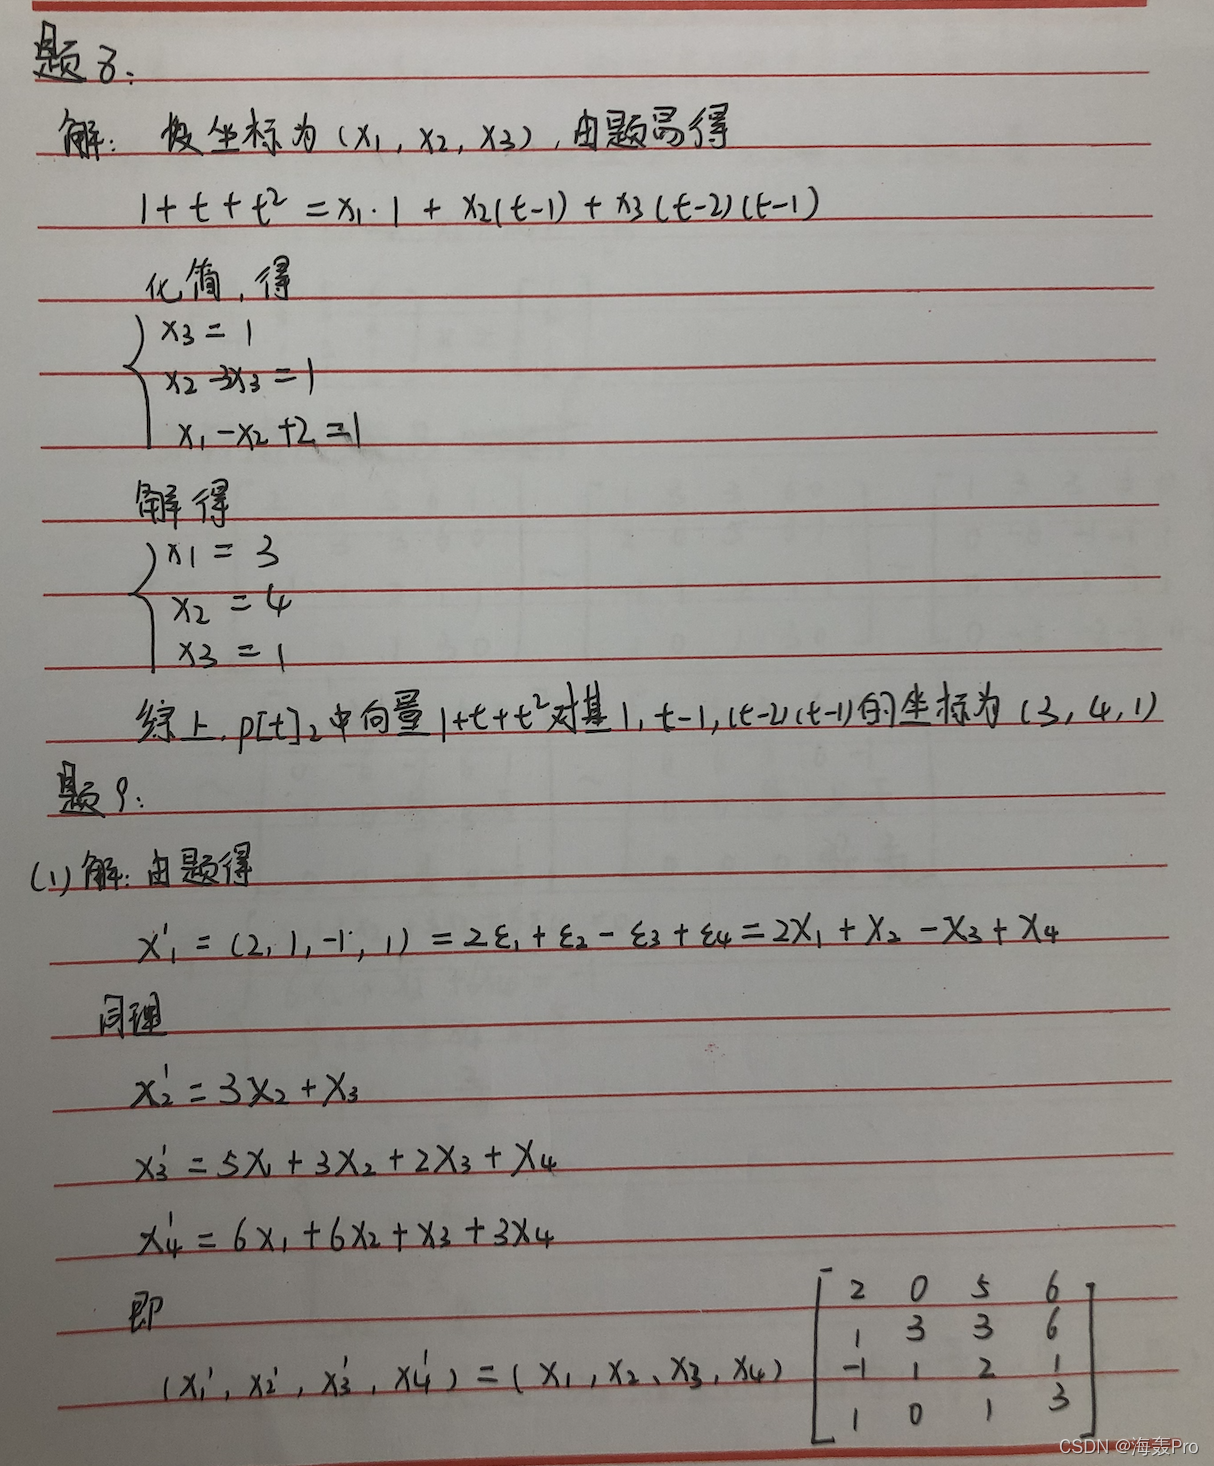 题8:
解: 设坐标为 (x₁, x₂, x₃), 由题易得
1+t+t² = x₁·1 + x₂(t-1) + x₃(t-2)(t-1)
化简, 得
x₃ = 1
x₂-3x₃ = 1
x₁-x₂+2 = 1
解得
x₁ = 3
x₂ = 4
x₃ = 1
综上, P[t]₂中向量1+t+t²对基1, t-1, (t-2)(t-1)的坐标为 (3, 4, 1)
题9:
(1) 解: 由题得
x₁' = (2, 1, -1, 1) = 2ε₁+ε₂-ε₃+ε₄ = 2x₁+x₂-x₃+x₄
同理
x₂' = 3x₂+x₃
x₃' = 5x₁+3x₂+2x₃+x₄
x₄' = 6x₁+6x₂+x₃+3x₄
即
(x₁', x₂', x₃', x₄') = (x₁, x₂, x₃, x₄)
2 0 5 6
1 3 3 6
-1 1 2 1
1 0 1 3
CSDN @海轰Pro